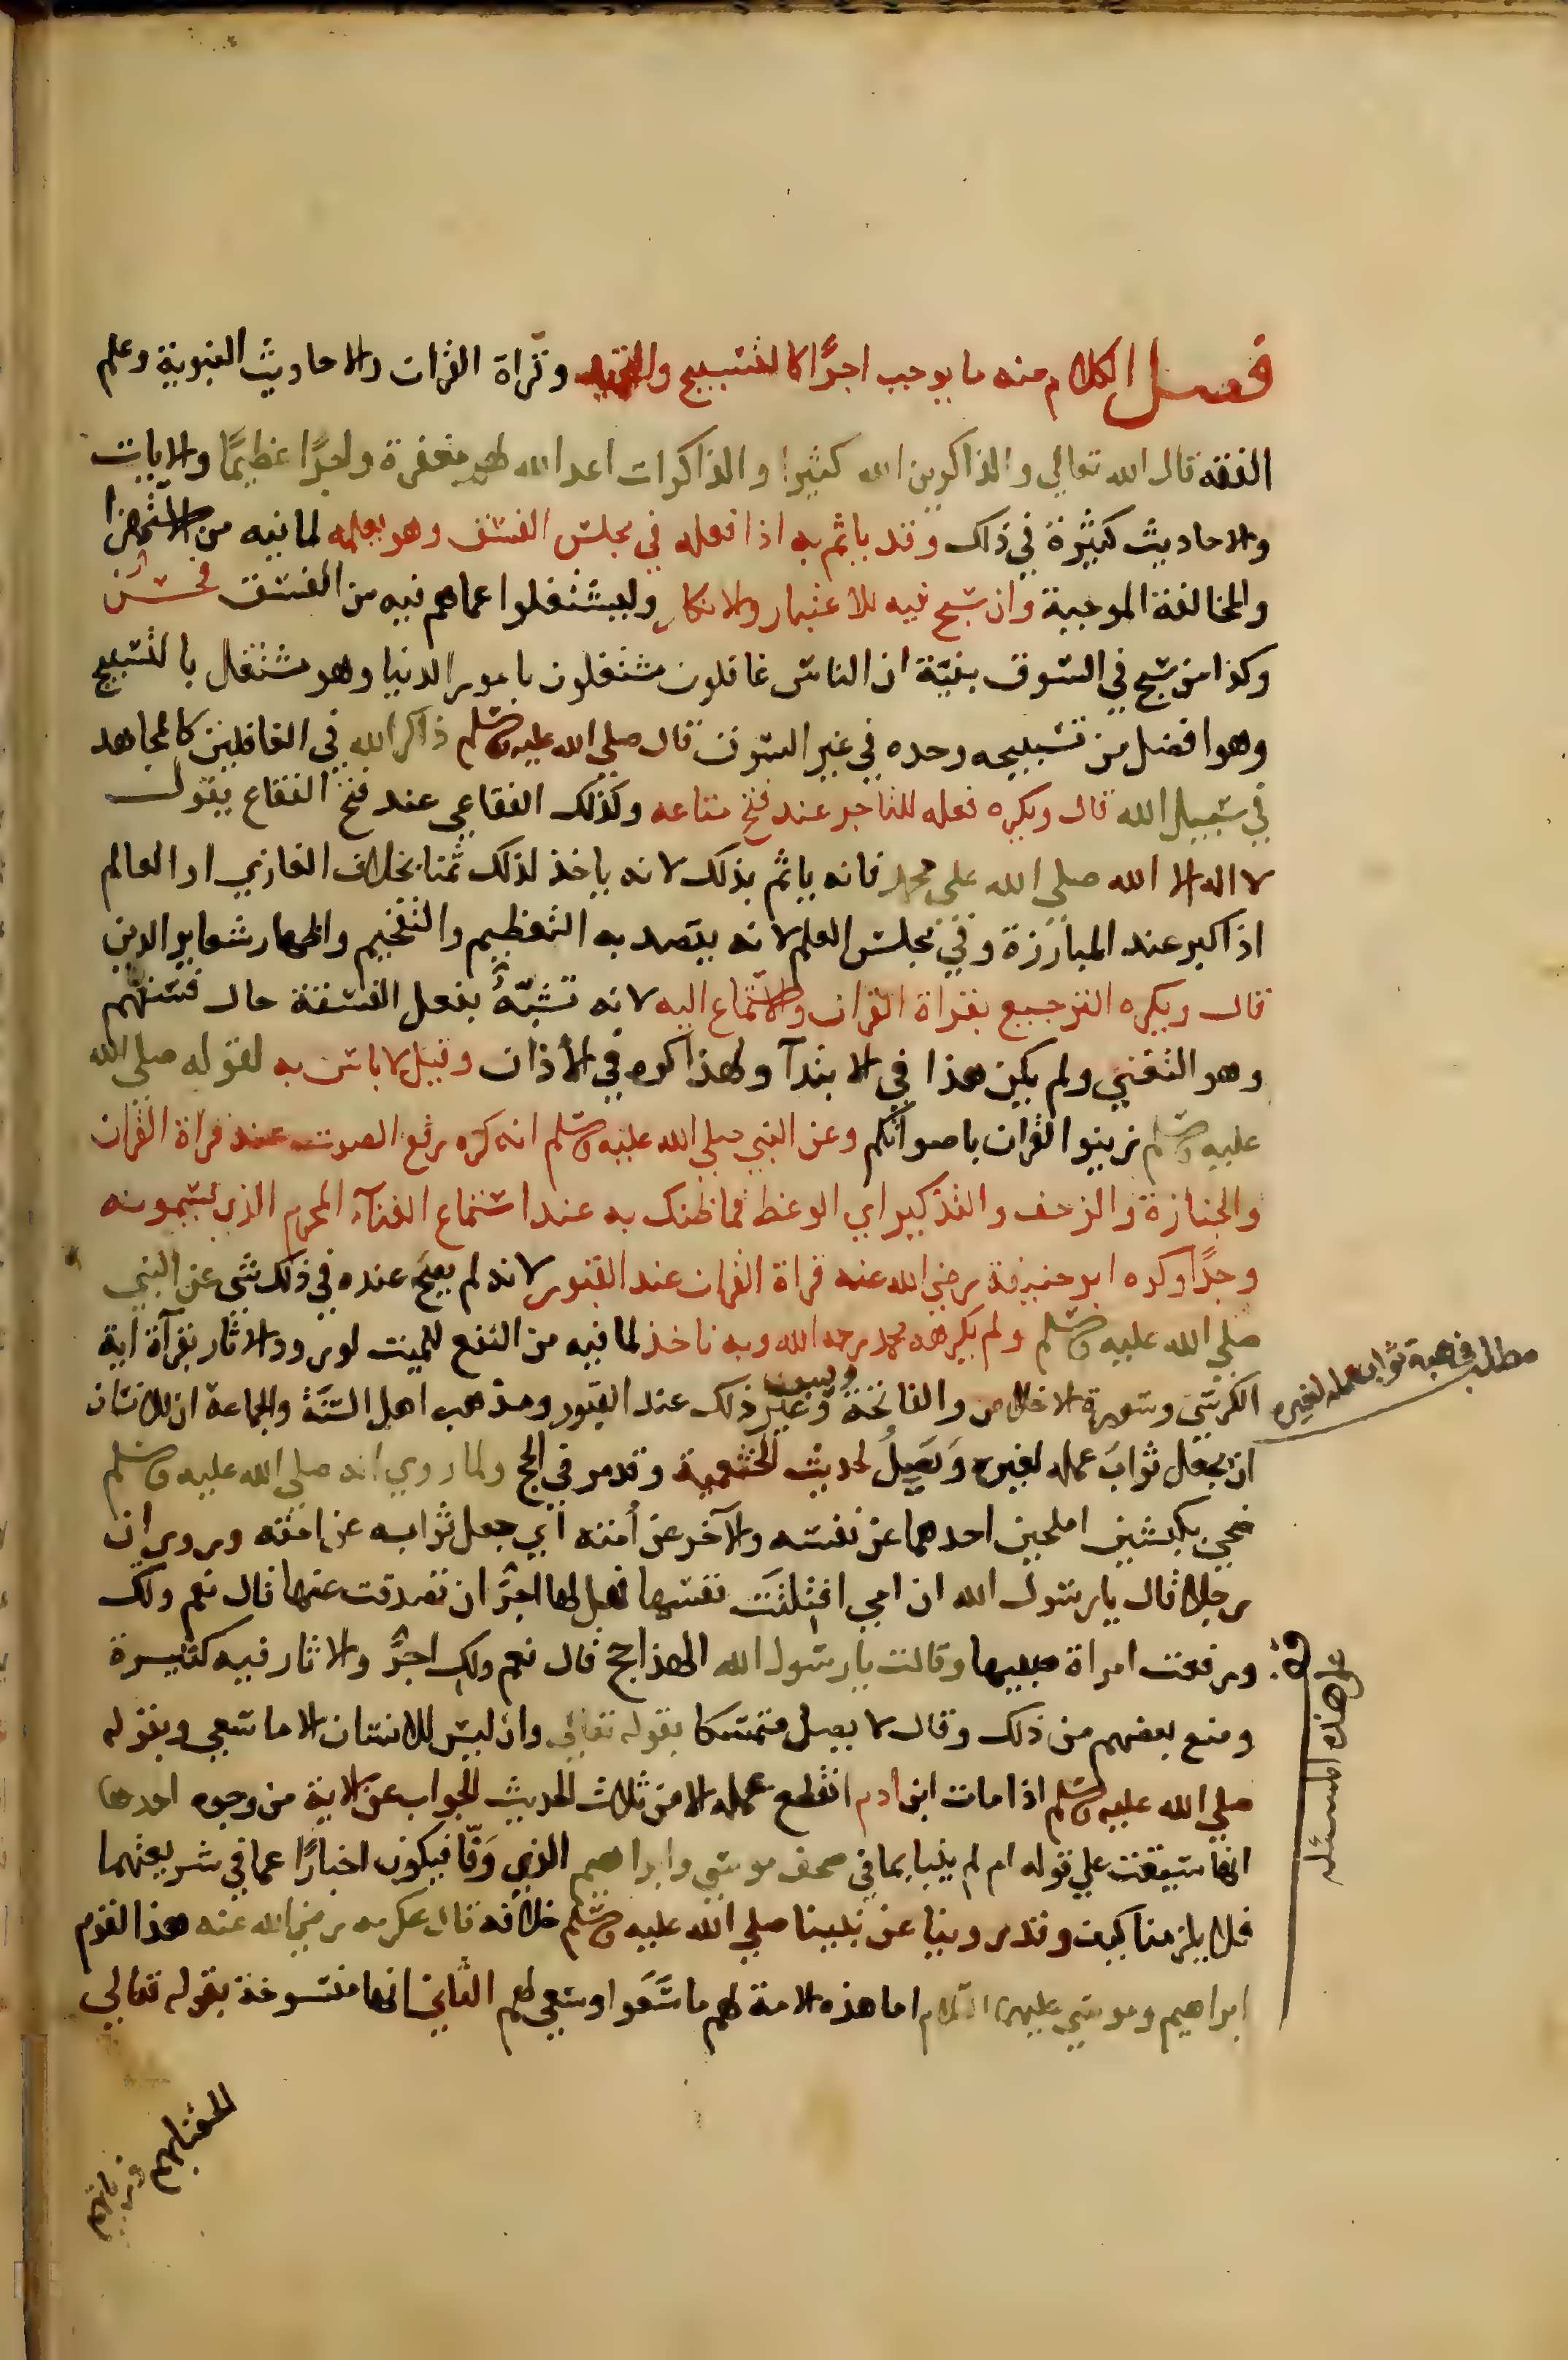 فصل الكلام منه ما يوجب اجرًا كالتسبيح والتحميد وقراة القران والاحاديث النبوية وعلم
الفقه قال الله تعالي والذاكرين الله كثيرا والذاكرات اعد الله لهم مغفرة واجرًا عظيمًا والايات
والاحاديث كثيرة في ذلك وقد ياثم به اذا فعله في مجلس الفسق وهو يعلمه لما فيه من الاستهزا
والمخالفة الموجبة وان سبح فيه للاعتبار والانكار وليشتغلوا عماهم فيه من الفسق فحسن
وكذا من سبح في السوق بنيّة ان الناس غافلون مشتغلون بامور الدنيا وهو مشتغل بالتسبيح
وهو افضل من تسبيحه وحده في غير السوق قال صلي الله عليه وسلم ذاكر الله في الغافلين كالمجاهد
في سبيل الله قال ويكره فعله للتاجر عند فتح متاعه وكذلك الفقاعي عند فتح الفقاع يقول
لا اله الا الله صلي الله علي محمد فانه ياثم بذلك لانه ياخذ لذلك ثمنا بخلاف الغازي او العالم
اذا كبر عند المبارزة وفي مجلس العلم لانه يقصد به التعظيم والتفخيم واظهار شعاير الدين
قال ويكره الترجيع بقراة القران والاستماع اليه لانه تشبّهٌ بفعل الفسقة حال فسقهم
وهو التغني ولم يكن هذا في الابتدآ ولهذا كره في الأذان وقيل لا باس به لقوله صلي الله
عليه وسلم زينوا القران باصواتكم وعن النبي صلي الله عليه وسلم انه كره رفع الصوت عند قراة القران
والجنازة والزحف والتذكير اي الوعظ فما ظنك به عند استماع الغنآء المحرم الذي يسمونه
وجدًا وكره ابو حنيفة رضي الله عنه قراة القران عند القبور لانه لم يصح عنده في ذلك شي عن النبي
صلي الله عليه وسلم ولم يكرهه محمد رحمه الله وبه ناخذ لما فيه من النفع للميت لورود الاثار بقرآة اية
الكرسي وسورة الاخلاص والفاتحة وغير ذلك عند القبور ومذهب اهل السنَّة والجماعة ان للانسان
ان يجعل ثوابَ عمله لغيره وَيَصِلُ لحديث الخثعمية وقد مر في الحج ولما روي انه صلي الله عليه وسلم
ضحي بكبشين املحين احدهما عن نفسه والآخر عن أمته اي جعل ثوابه عن امته وروي ان
رجلا قال يا رسول الله ان امي افتلتت نفسها فهل لها اجرٌ ان تصدقت عنها قال نعم ولك
ورفعت امراة صبيها وقالت يا رسول الله الهذا حج قال نعم ولك اجرٌ والاثار فيه كثيرة
ومنع بعضهم من ذلك وقال لا يصل متمسكا بقوله تعالي وان ليس للانسان الا ما سعي وبقوله
صلي الله عليه وسلم اذا مات ابن ادم انقطع عمله الا من ثلاث الحديث الجواب عن الاية من وجوه احدها
انها سيقت علي قوله ام لم ينبا بما في صحف موسي وابراهيم الذي وَفّا فيكون اخبارًا عما في شريعتهما
فلا يلزمنا كيف وقد روينا عن نبينا صلي الله عليه وسلم خلافه قال عكرمه رضي الله عنه هذا لقوم
ابراهيم وموسي عليهما السلام اما هذه الامة لهم ما سَعَوا وسعي لهم الثاني انها منسوخة بقوله تعالي
مطلب في هبة ثواب عمله لغيره
قف علي هذه المسئله
الحقنا بهم ذرياتهم